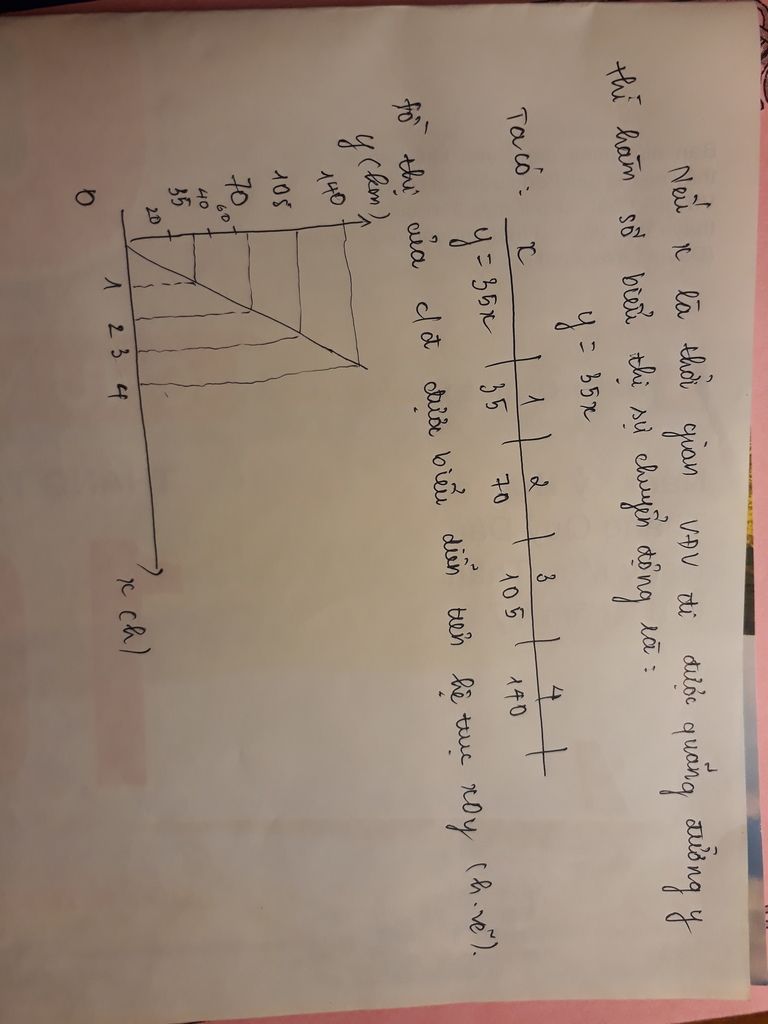 Nếu x là thời gian VĐV đi được quãng đường y
thì hàm số biểu thị sự chuyển động là:
y = 35x
Ta có:
x 1 2 3 4
y = 35x 35 70 105 140
Đồ thị của c/đ được biểu diễn trên hệ trục xOy (h.vẽ).
y (km)
140
105
70
60
40
35
20
0 1 2 3 4 x (h)